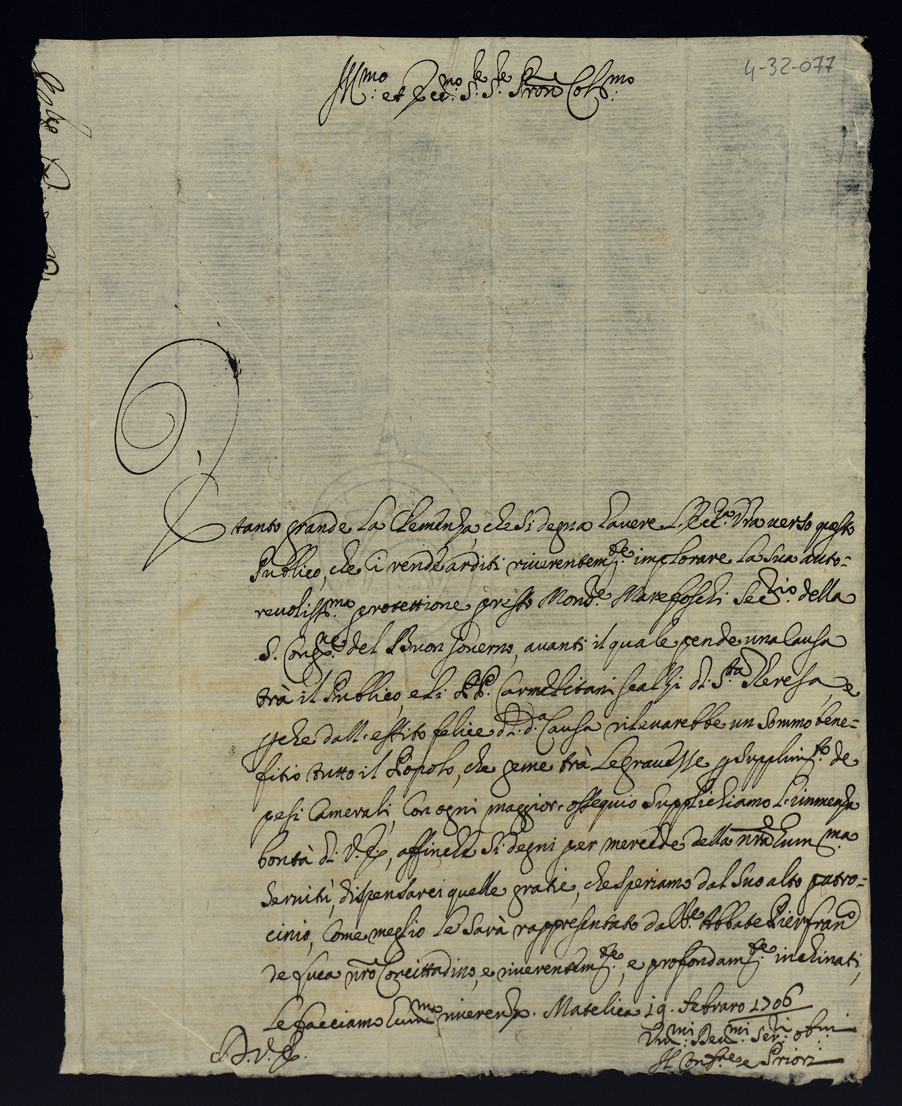 4-32-077
Ill.mo et Ecc.mo S.re S.re Pron Col.mo
È tanto grande la Clemenza, che si degna havere l'Ecc.za V.ra verso questo
Publico, che ci rende arditi riverentem.te implorare la sua auto-
revoliss.ma protettione presso Mons.re Marefoschi Seg.rio della
S. Cong.ne del Buon Governo, avanti il quale pende una Causa
trà il Publico, e li PP. Carmelitani scalzi di S.ta Teresa, e
perche dall'esito felice di d.a Causa rileverebbe un sommo bene-
fitio tutto il Popolo, che geme trà le gravezze p supplim.to de
pesi Camerali, con ogni maggior ossequio supplichiamo l'immensa
bontà di V.E., affinche si degni per mercede della nra hum.ma
servitù, dispensarci quelle gratie, che speriamo dal suo alto patro-
cinio, come meglio le sarà rappresentato dall' Abbate Pierfran.o
de Luca nro Concittadino, e riverentem.te, e profondam.te inchinati,
le facciamo hum.ma riverenza. Matelica 19 Febraro 1706
D. V. E.
Hum.mi Dev.mi Ser.ri obl.mi
Il Conf.re e Priori